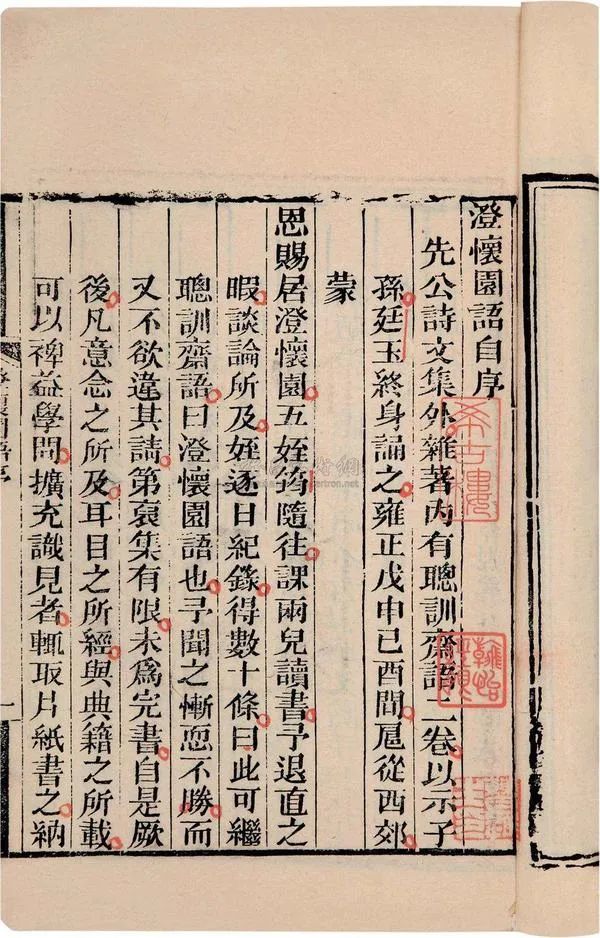 澄懷園語自序
先公詩文集外雜著內有聰訓齋語二卷以示子
孫廷玉終身誦之雍正戊申己酉間扈從西郊
蒙
恩賜居澄懷園五姪筠隨往課兩兒讀書予退直之
暇談論所及姪逐日紀錄得數十條曰此可繼
聰訓齋語曰澄懷園語也予聞之慚恧不勝而
又不欲違其請第裒集有限未為完書自是厥
後凡意念之所及耳目之所經與典籍之所載
可以裨益學問擴充識見者輒取片紙書之納
一
希古樓